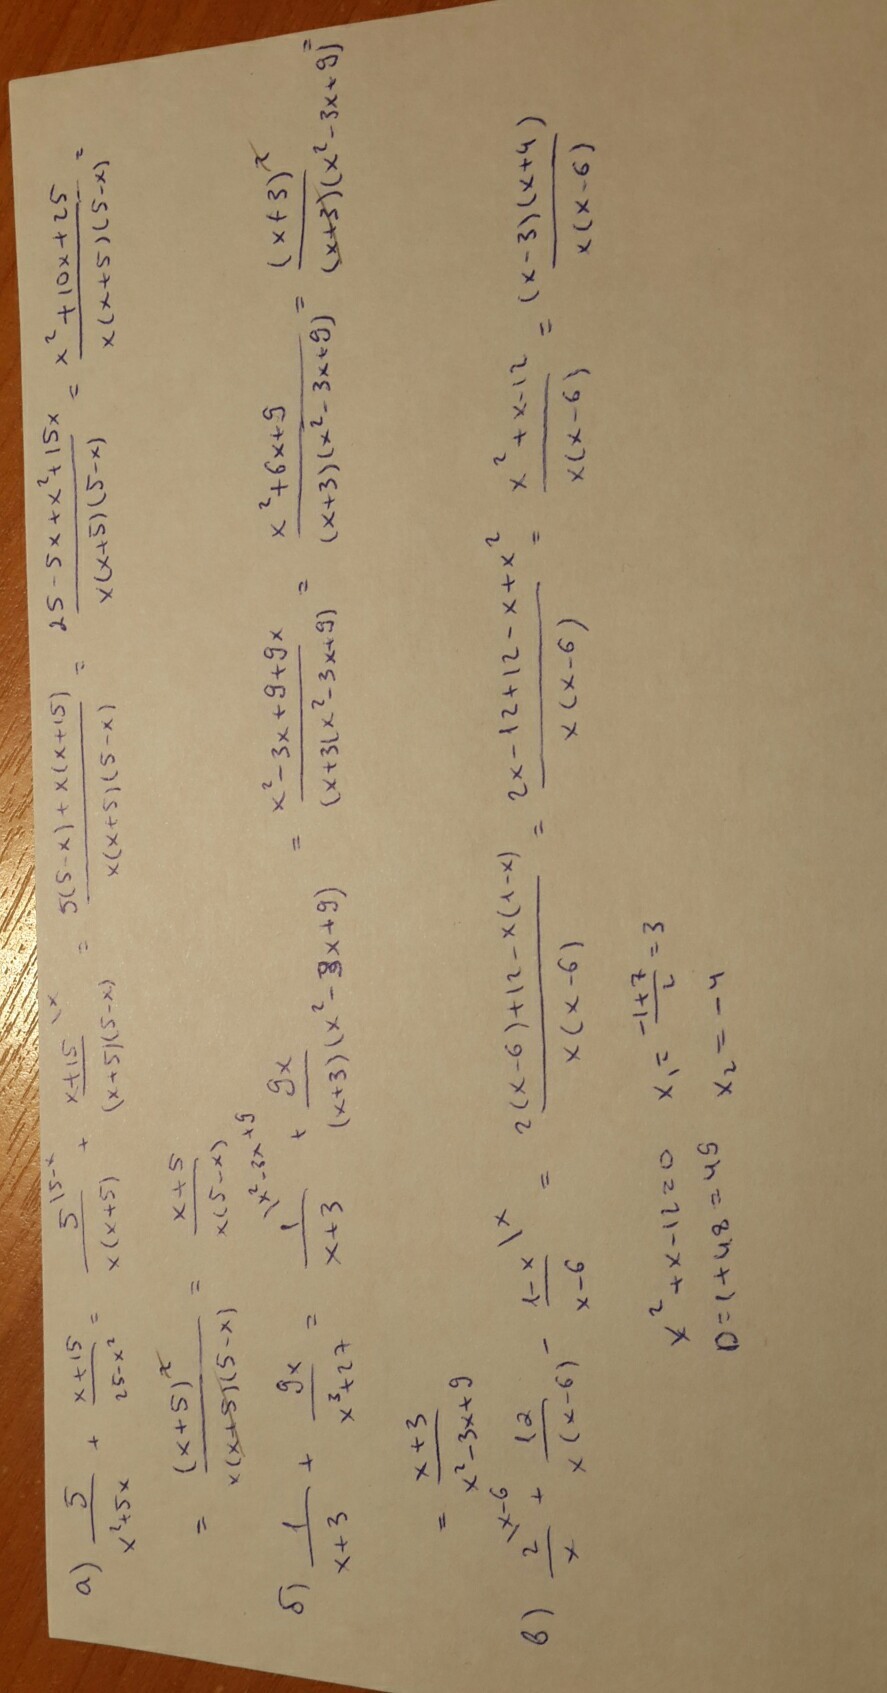 а) 5/(x²+5x) + (x+15)/(25-x²) = 5\5-x/(x(x+5)) + (x+15)\x/((x+5)(5-x)) = (5(5-x)+x(x+15))/(x(x+5)(5-x)) = (25-5x+x²+15x)/(x(x+5)(5-x)) = (x²+10x+25)/(x(x+5)(5-x)) =
= (x+5)²/(x(x+5)(5-x)) = (x+5)/(x(5-x))
б) 1/(x+3) + 9x/(x³+27) = 1\x²-3x+9/(x+3) + 9x/((x+3)(x²-3x+9)) = (x²-3x+9+9x)/((x+3(x²-3x+9)) = (x²+6x+9)/((x+3)(x²-3x+9)) = (x+3)²/((x+3)(x²-3x+9)) =
= (x+3)/(x²-3x+9)
в) 2\x-6/x + 12/(x(x-6)) - (1-x)\x/(x-6) = (2(x-6)+12-x(1-x))/(x(x-6)) = (2x-12+12-x+x²)/(x(x-6)) = (x²+x-12)/(x(x-6)) = ((x-3)(x+4))/(x(x-6))
x²+x-12=0 x₁=(-1+7)/2=3
D=1+48=49 x₂=-4